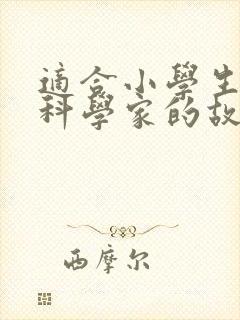 適合小學生
科學家的故
西摩尔